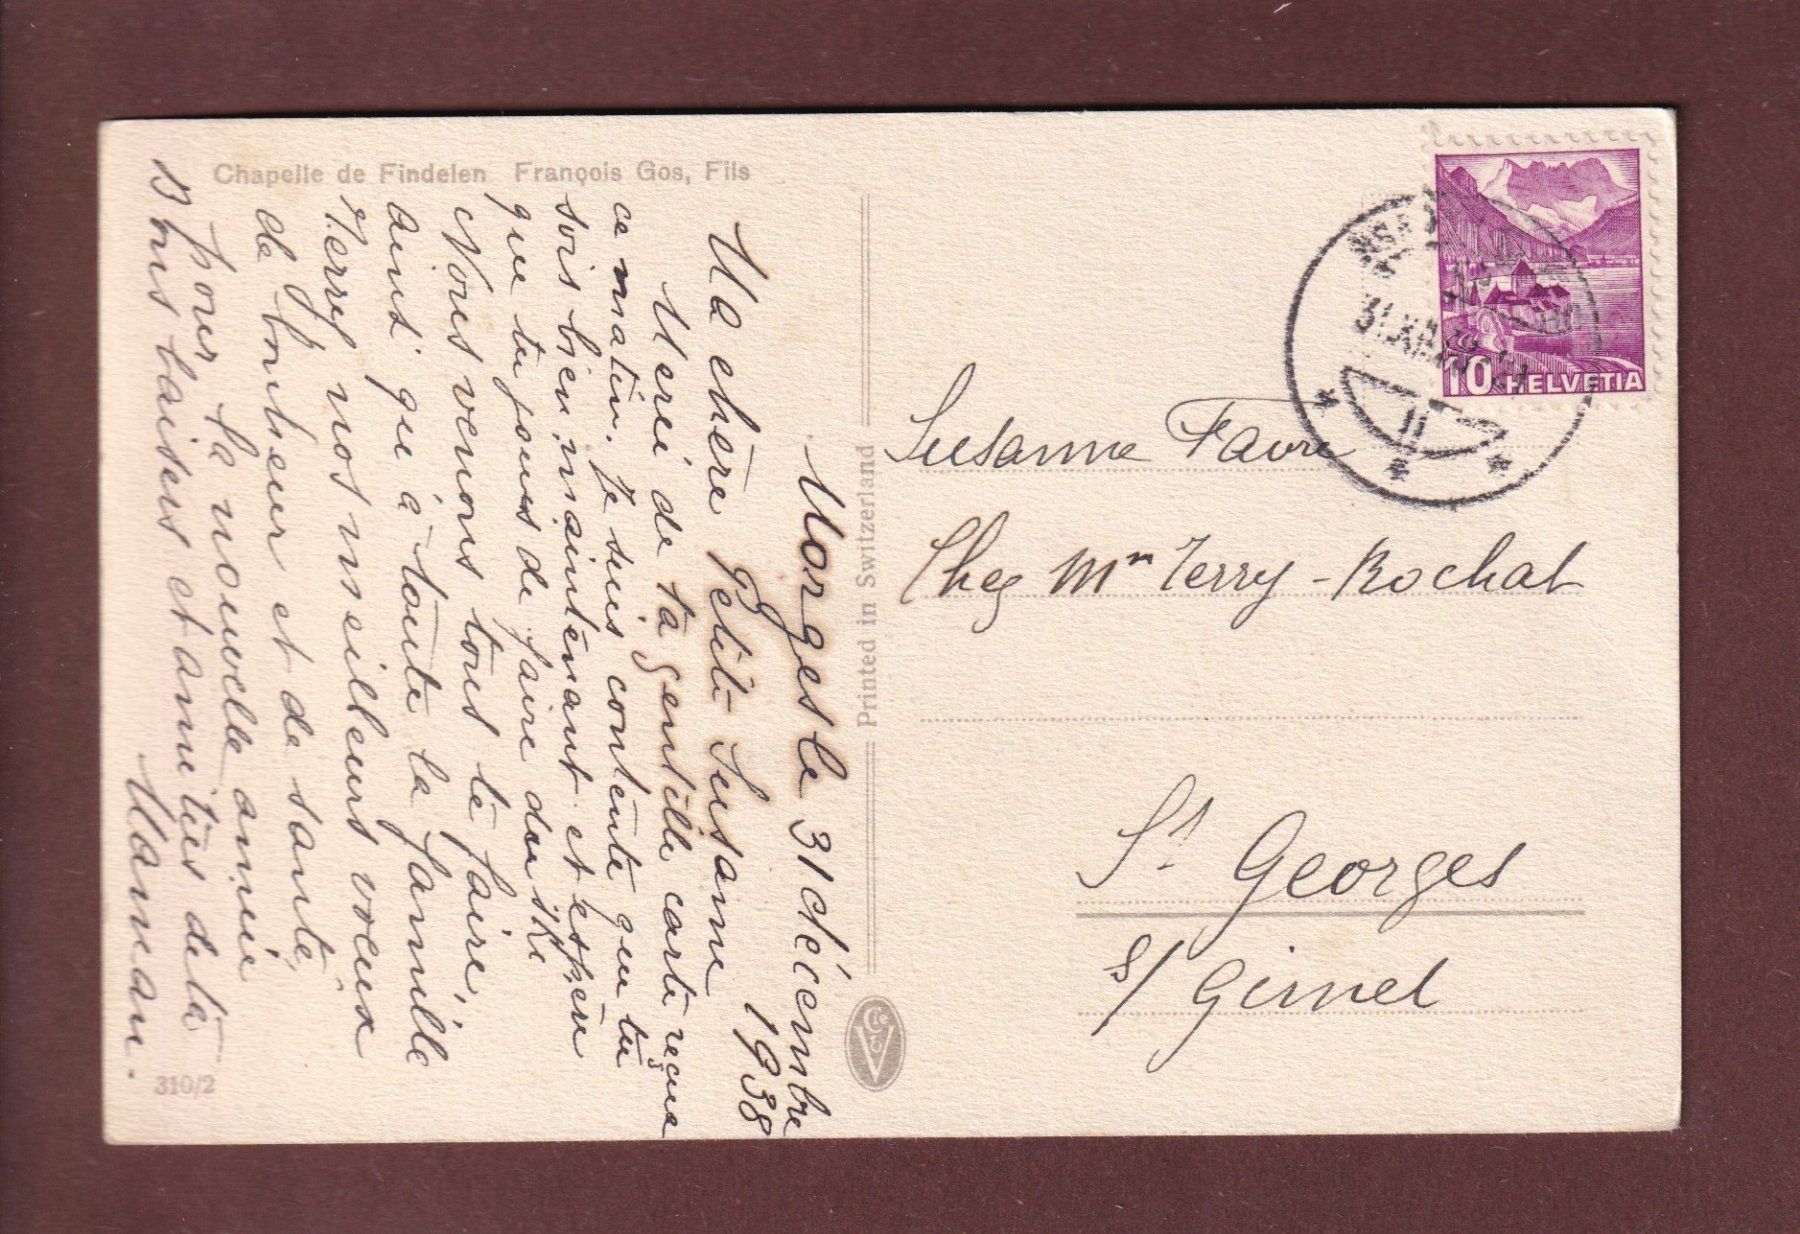 Chapelle de Findelen François Gos, Fils
Morges le 31 décembre
1938
Ma chère petite Susanne
Merci de ta gentille carte reçue
ce matin. Je suis contente que tu
sois bien maintenant et espère
que tu pourras de faire du ski
Nous venons tous te faire,
ainsi qu'à toute la famille
Terry nos meilleurs voeux
de bonheur et de santé,
pour la nouvelle année
Bons baisers et amitiés de ta
Maman.
310/2
Printed in Switzerland
10 HELVETIA
31.XII.38
II
Susanne Favre
Chez Mm Terry-Rochat
St Georges
s/ Gimel